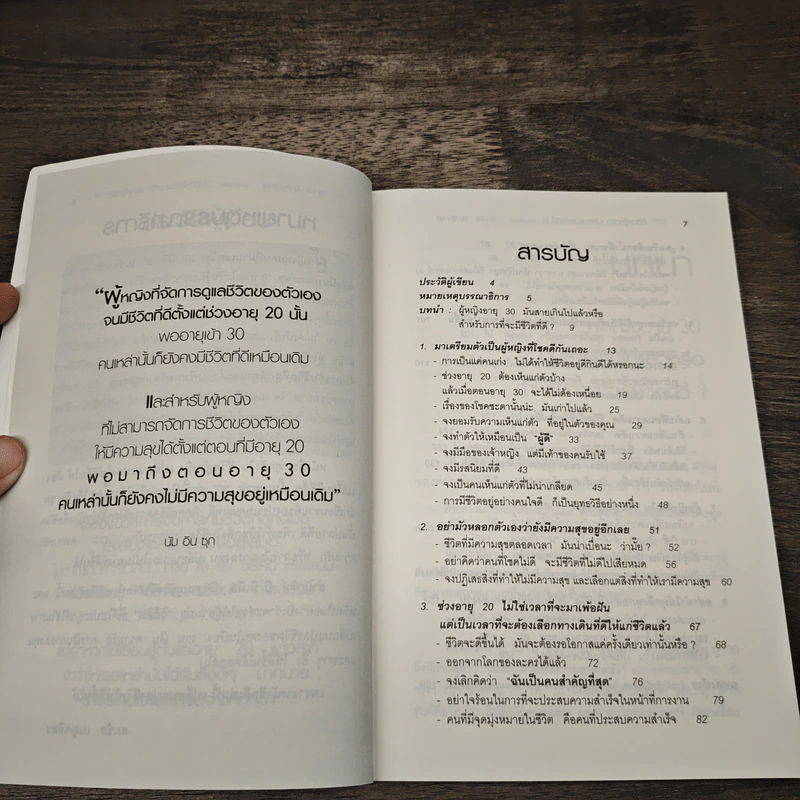 "ผู้หญิงที่จัดการดูแลชีวิตของตัวเอง
จนมีชีวิตที่ดีตั้งแต่ช่วงอายุ 20 นั้น
พออายุเข้า 30
คนเหล่านั้นก็ยังคงมีชีวิตที่ดีเหมือนเดิม
และสำหรับผู้หญิง
ที่ไม่สามารถจัดการชีวิตของตัวเอง
ให้มีความสุขได้ตั้งแต่ตอนที่มีอายุ 20
พอมาถึงตอนอายุ 30
คนเหล่านั้นก็ยังคงไม่มีความสุขอยู่เหมือนเดิม"
นัม อิน ซุก
7
สารบัญ
ประวัติผู้เขียน 4
หมายเหตุบรรณาธิการ 5
บทนำ : ผู้หญิงอายุ 30 มันสายเกินไปแล้วหรือ
สำหรับการที่จะมีชีวิตที่ดี ? 9
1. มาเตรียมตัวเป็นผู้หญิงที่โชคดีกันเถอะ 13
- การเป็นแค่คนเก่ง ไม่ได้ทำให้ชีวิตอยู่ดีกินดีได้หรอกนะ 14
- ช่วงอายุ 20 ต้องเห็นแก่ตัวบ้าง
แล้วเมื่อตอนอายุ 30 จะได้ไม่ต้องเหนื่อย 19
- เรื่องของโชคชะตานั้นน่ะ มันเก่าไปแล้ว 25
- จงยอมรับความเห็นแก่ตัว ที่อยู่ในตัวของคุณ 29
- จงทำตัวให้เหมือนเป็น "ผู้ดี" 33
- จงมีมือของเจ้าหญิง แต่มีเท้าของคนรับใช้ 37
- จงมีรสนิยมที่ดี 43
- จงเป็นคนเห็นแก่ตัวที่ไม่น่าเกลียด 45
- การมีชีวิตอยู่อย่างคนใจดี ก็เป็นยุทธวิธีอย่างหนึ่ง 48
2. อย่ามัวหลอกตัวเองว่ายังมีความสุขอยู่อีกเลย 51
- ชีวิตที่มีความสุขตลอดเวลา มันน่าเบื่อนะ ว่ามั้ย ? 52
- อย่าคิดว่าคนที่โชคไม่ดี จะมีชีวิตที่ไม่ดีไปเสียหมด 56
- จงปฏิเสธสิ่งที่ทำให้ไม่มีความสุข และเลือกแต่สิ่งที่ทำให้เรามีความสุข 60
3. ช่วงอายุ 20 ไม่ใช่เวลาที่จะมาเพ้อฝัน
แต่เป็นเวลาที่จะต้องเลือกทางเดินที่ดีให้แก่ชีวิตแล้ว 67
- ชีวิตจะดีขึ้นได้ มันจะต้องรอโอกาสแค่ครั้งเดียวเท่านั้นหรือ ? 68
- ออกจากโลกของละครได้แล้ว 72
- จงเลิกคิดว่า "ฉันเป็นคนสำคัญที่สุด" 76
- อย่าใจร้อนในการที่จะประสบความสำเร็จในหน้าที่การงาน 79
- คนที่มีจุดมุ่งหมายในชีวิต คือคนที่ประสบความสำเร็จ 82